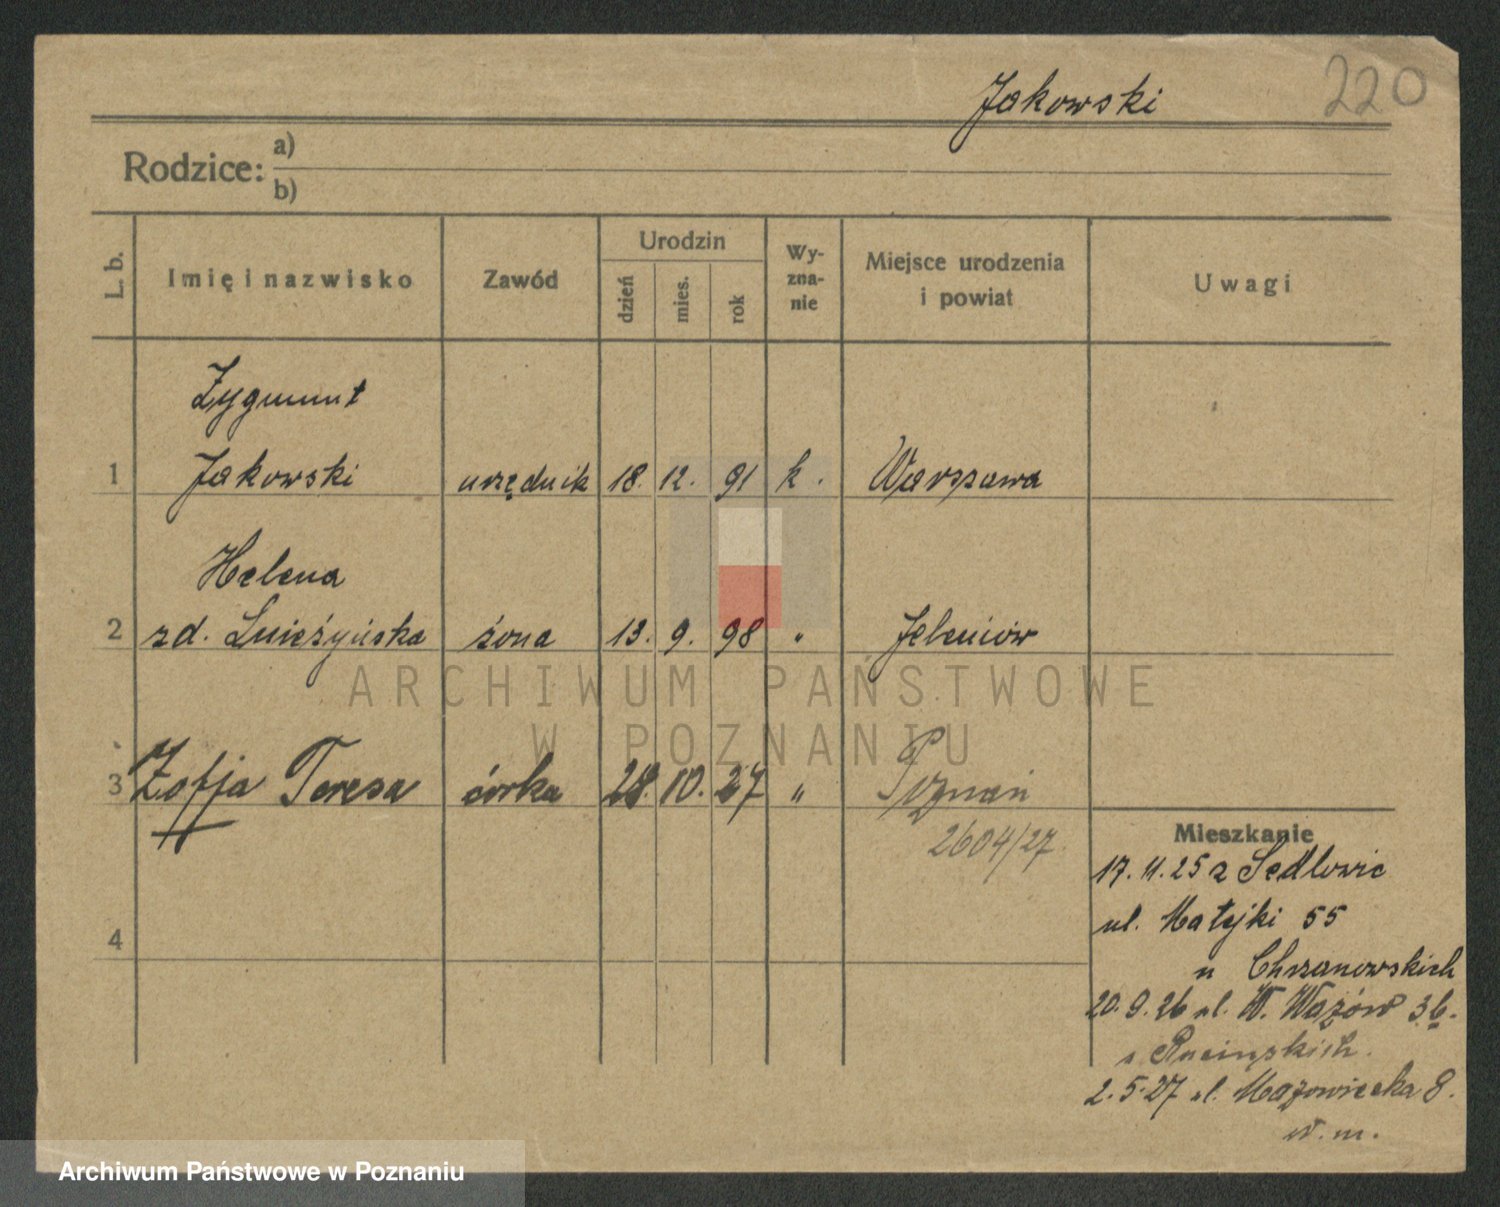 Jakowski 220
Rodzice: a)
b)
L. b.
Imię i nazwisko
Zawód
Urodzin
dzień
mies.
rok
Wy-
zna-
nie
Miejsce urodzenia
i powiat
Uwagi
Zygmunt
1 Jakowski urzędnik 18. 12. 91 k. Warszawa
Helena
2 zd. Śnieżyńska żona 13. 9. 98 " Jeleniów
3 Zofja Teresa córka 28. 10. 27 " Poznań
2604/27
4
Mieszkanie
17. 11. 25 z Sędlowic
ul. Matejki 55
u Chrzanowskich
20. 9. 26 ul. W. Wazów 36.
2. 5. 27 ul. Mazowiecka 8.
w. m.
ARCHIWUM PAŃSTWOWE
W POZNANIU
Archiwum Państwowe w Poznaniu